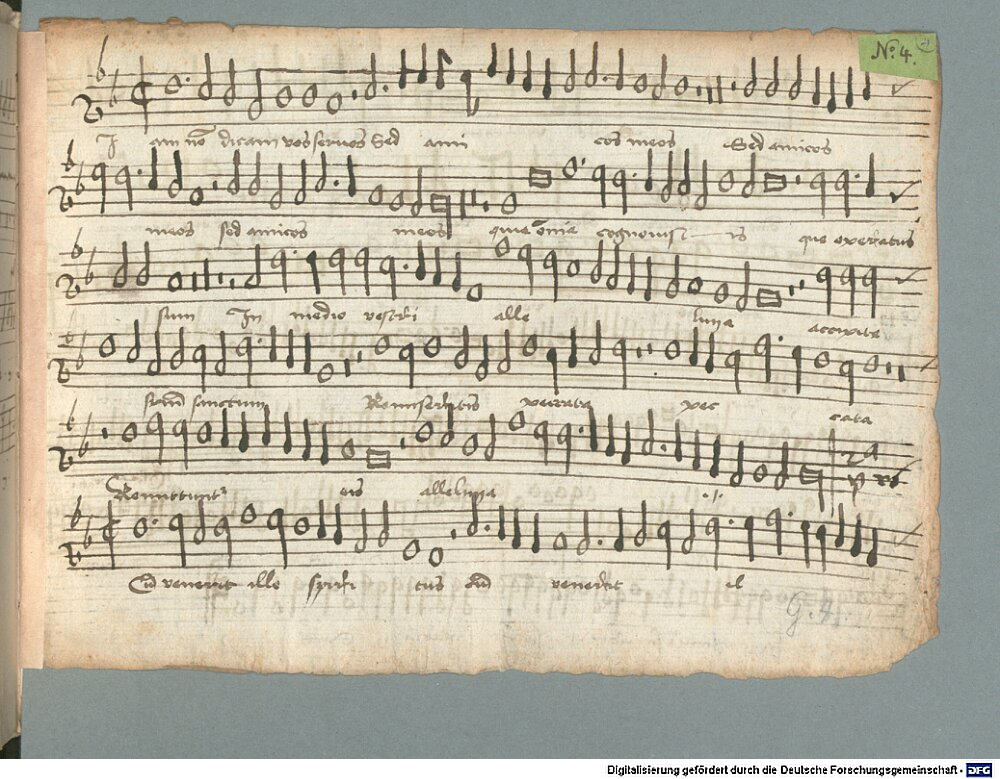 No: 4.
Iam nō dicam vos servos Sed ami cos meos Sed amicos
meos sed amicos meos quia ōmia cognovist is que operatus
sum In medio vestri alle luya accipite
spm̄ sanctum Remiseritis peccata pec cata
Remittunt eis alleluya ./.
2a
Cū venerit ille spiri tus cū venerit il
G. 4.
Digitalisierung gefördert durch die Deutsche Forschungsgemeinschaft - DFG